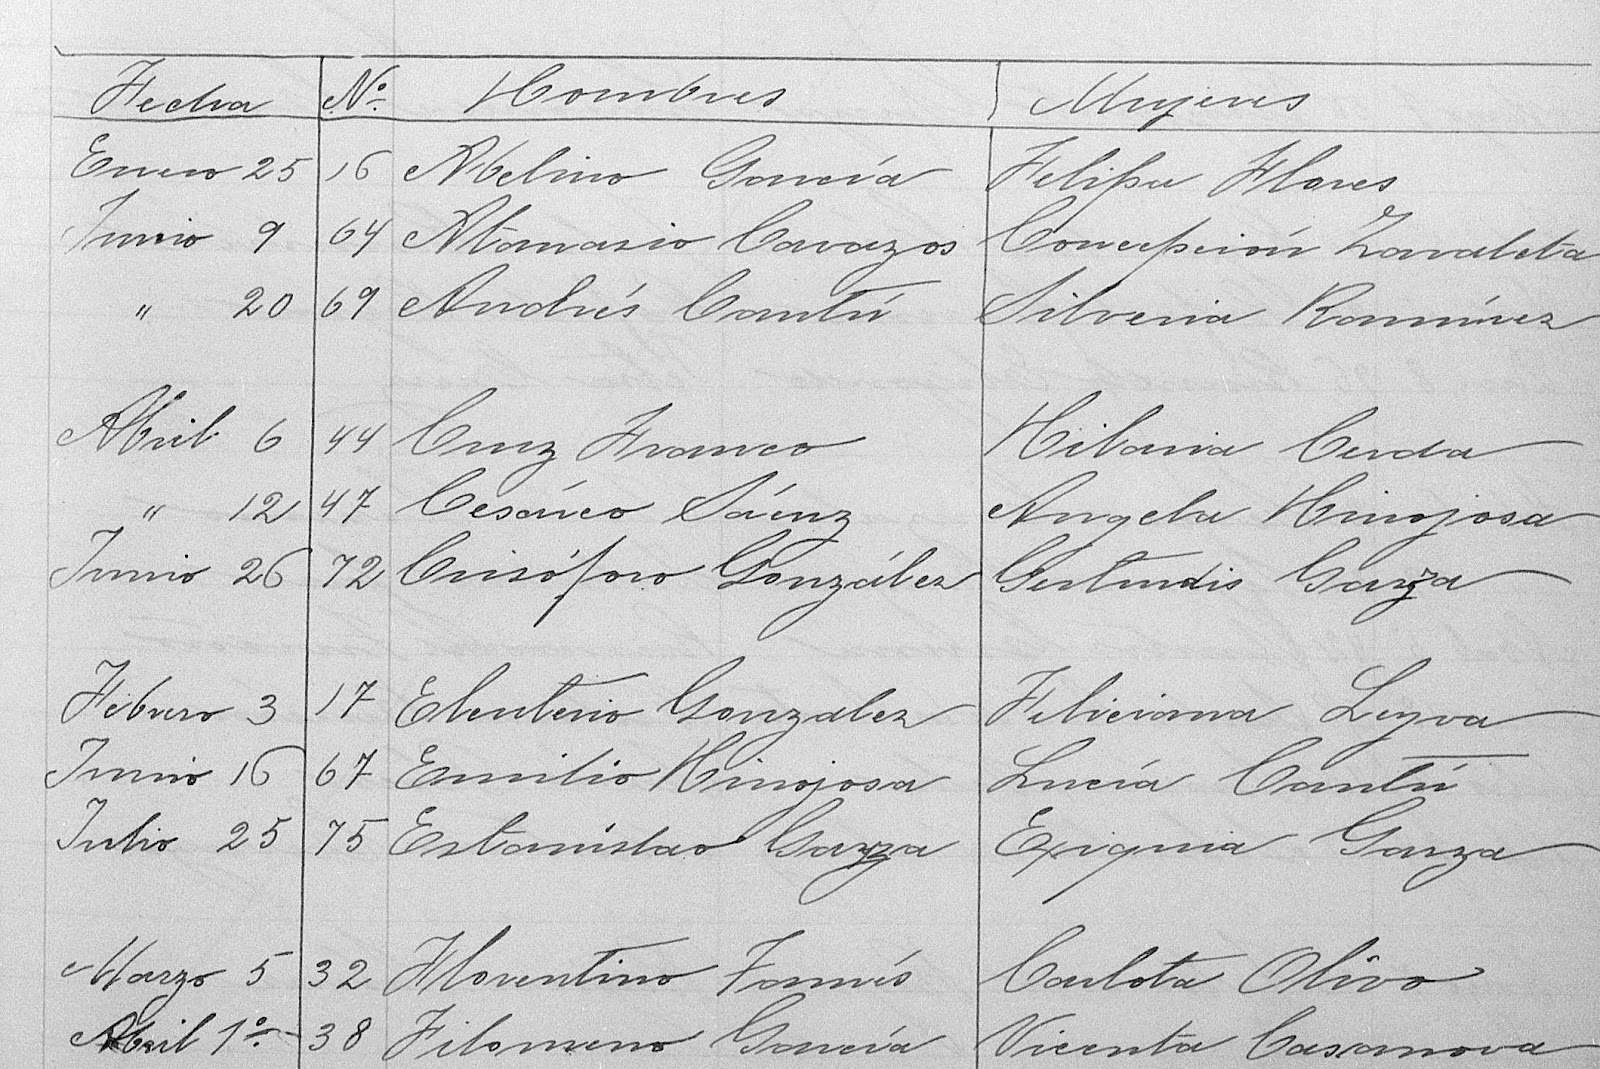 Fecha Nº Hombres Mujeres
Enero 25 16 Abelino García Felipa Flores
Junio 9 64 Atanasio Cavazos Concepción Zavaleta
" 20 69 Andrés Cantú Silveria Ramírez
Abril 6 44 Cruz Franco Hilaria Cerda
" 12 47 Cesáreo Sáenz Angela Hinojosa
Junio 26 72 Crisóforo González Gertrudis Garza
Febrero 3 17 Eleuterio Gonzalez Feliciana Leyva
Junio 16 67 Emilio Hinojosa Lucía Cantú
Julio 25 75 Estanislao Garza Exiquia Garza
Marzo 5 32 Florentino Carlota Olivo
Abril 1º 38 Filomeno García Vicenta Casanova